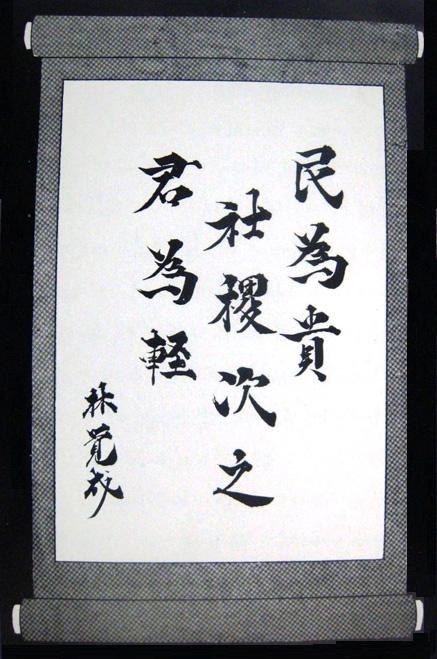 民為貴
社稷次之
君為軽
林覚成